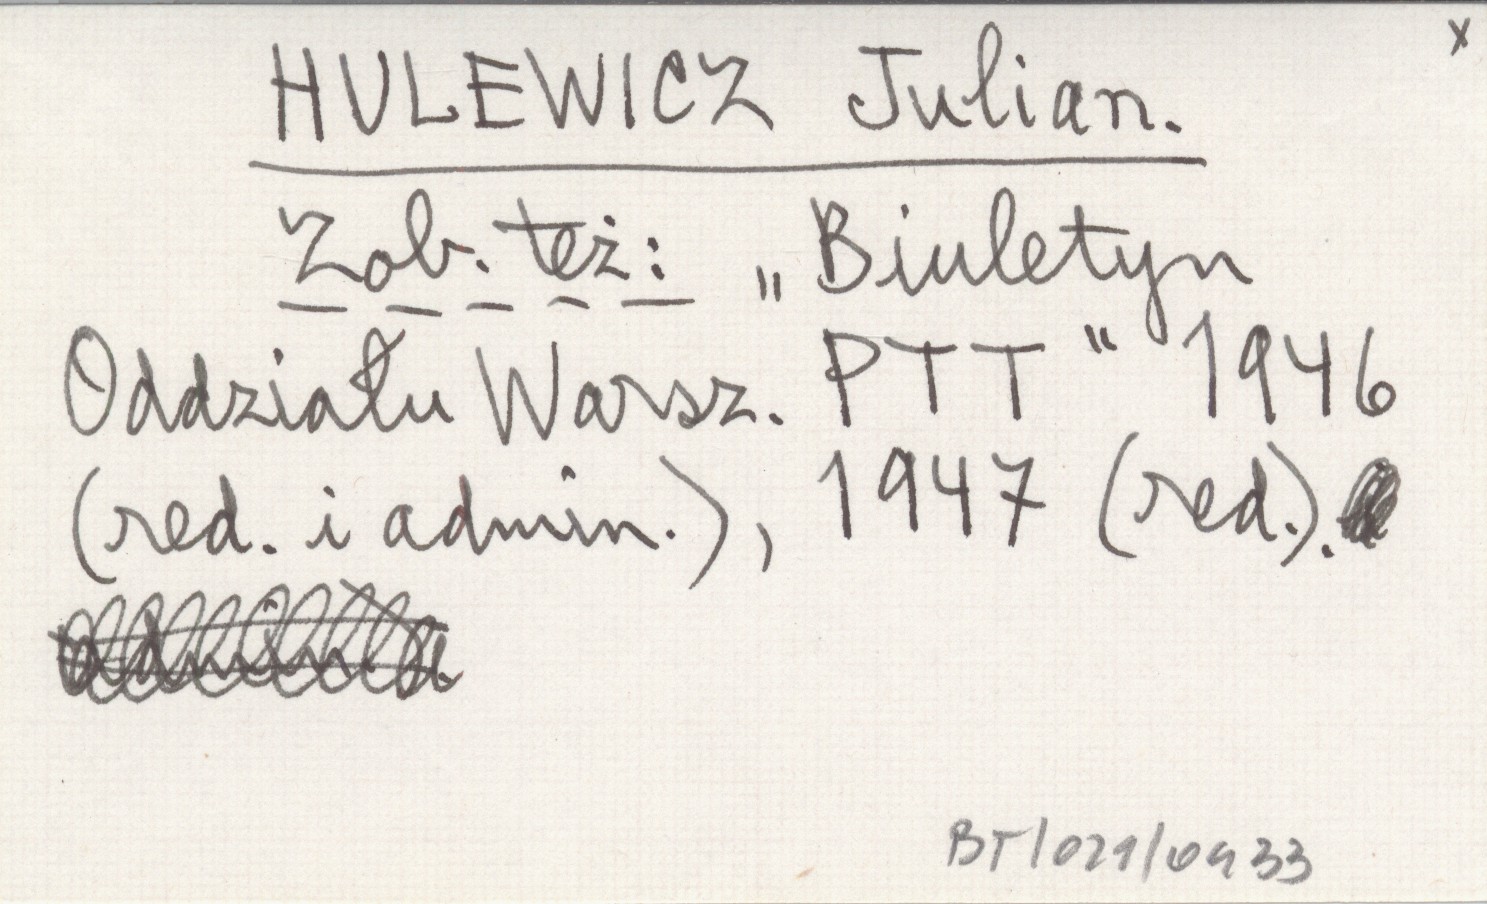 x
HULEWICZ Julian.
Zob. też: „Biuletyn
Oddziału Warsz. PTT" 1946
(red. i admin.), 1947 (red.).
BT/021/0433